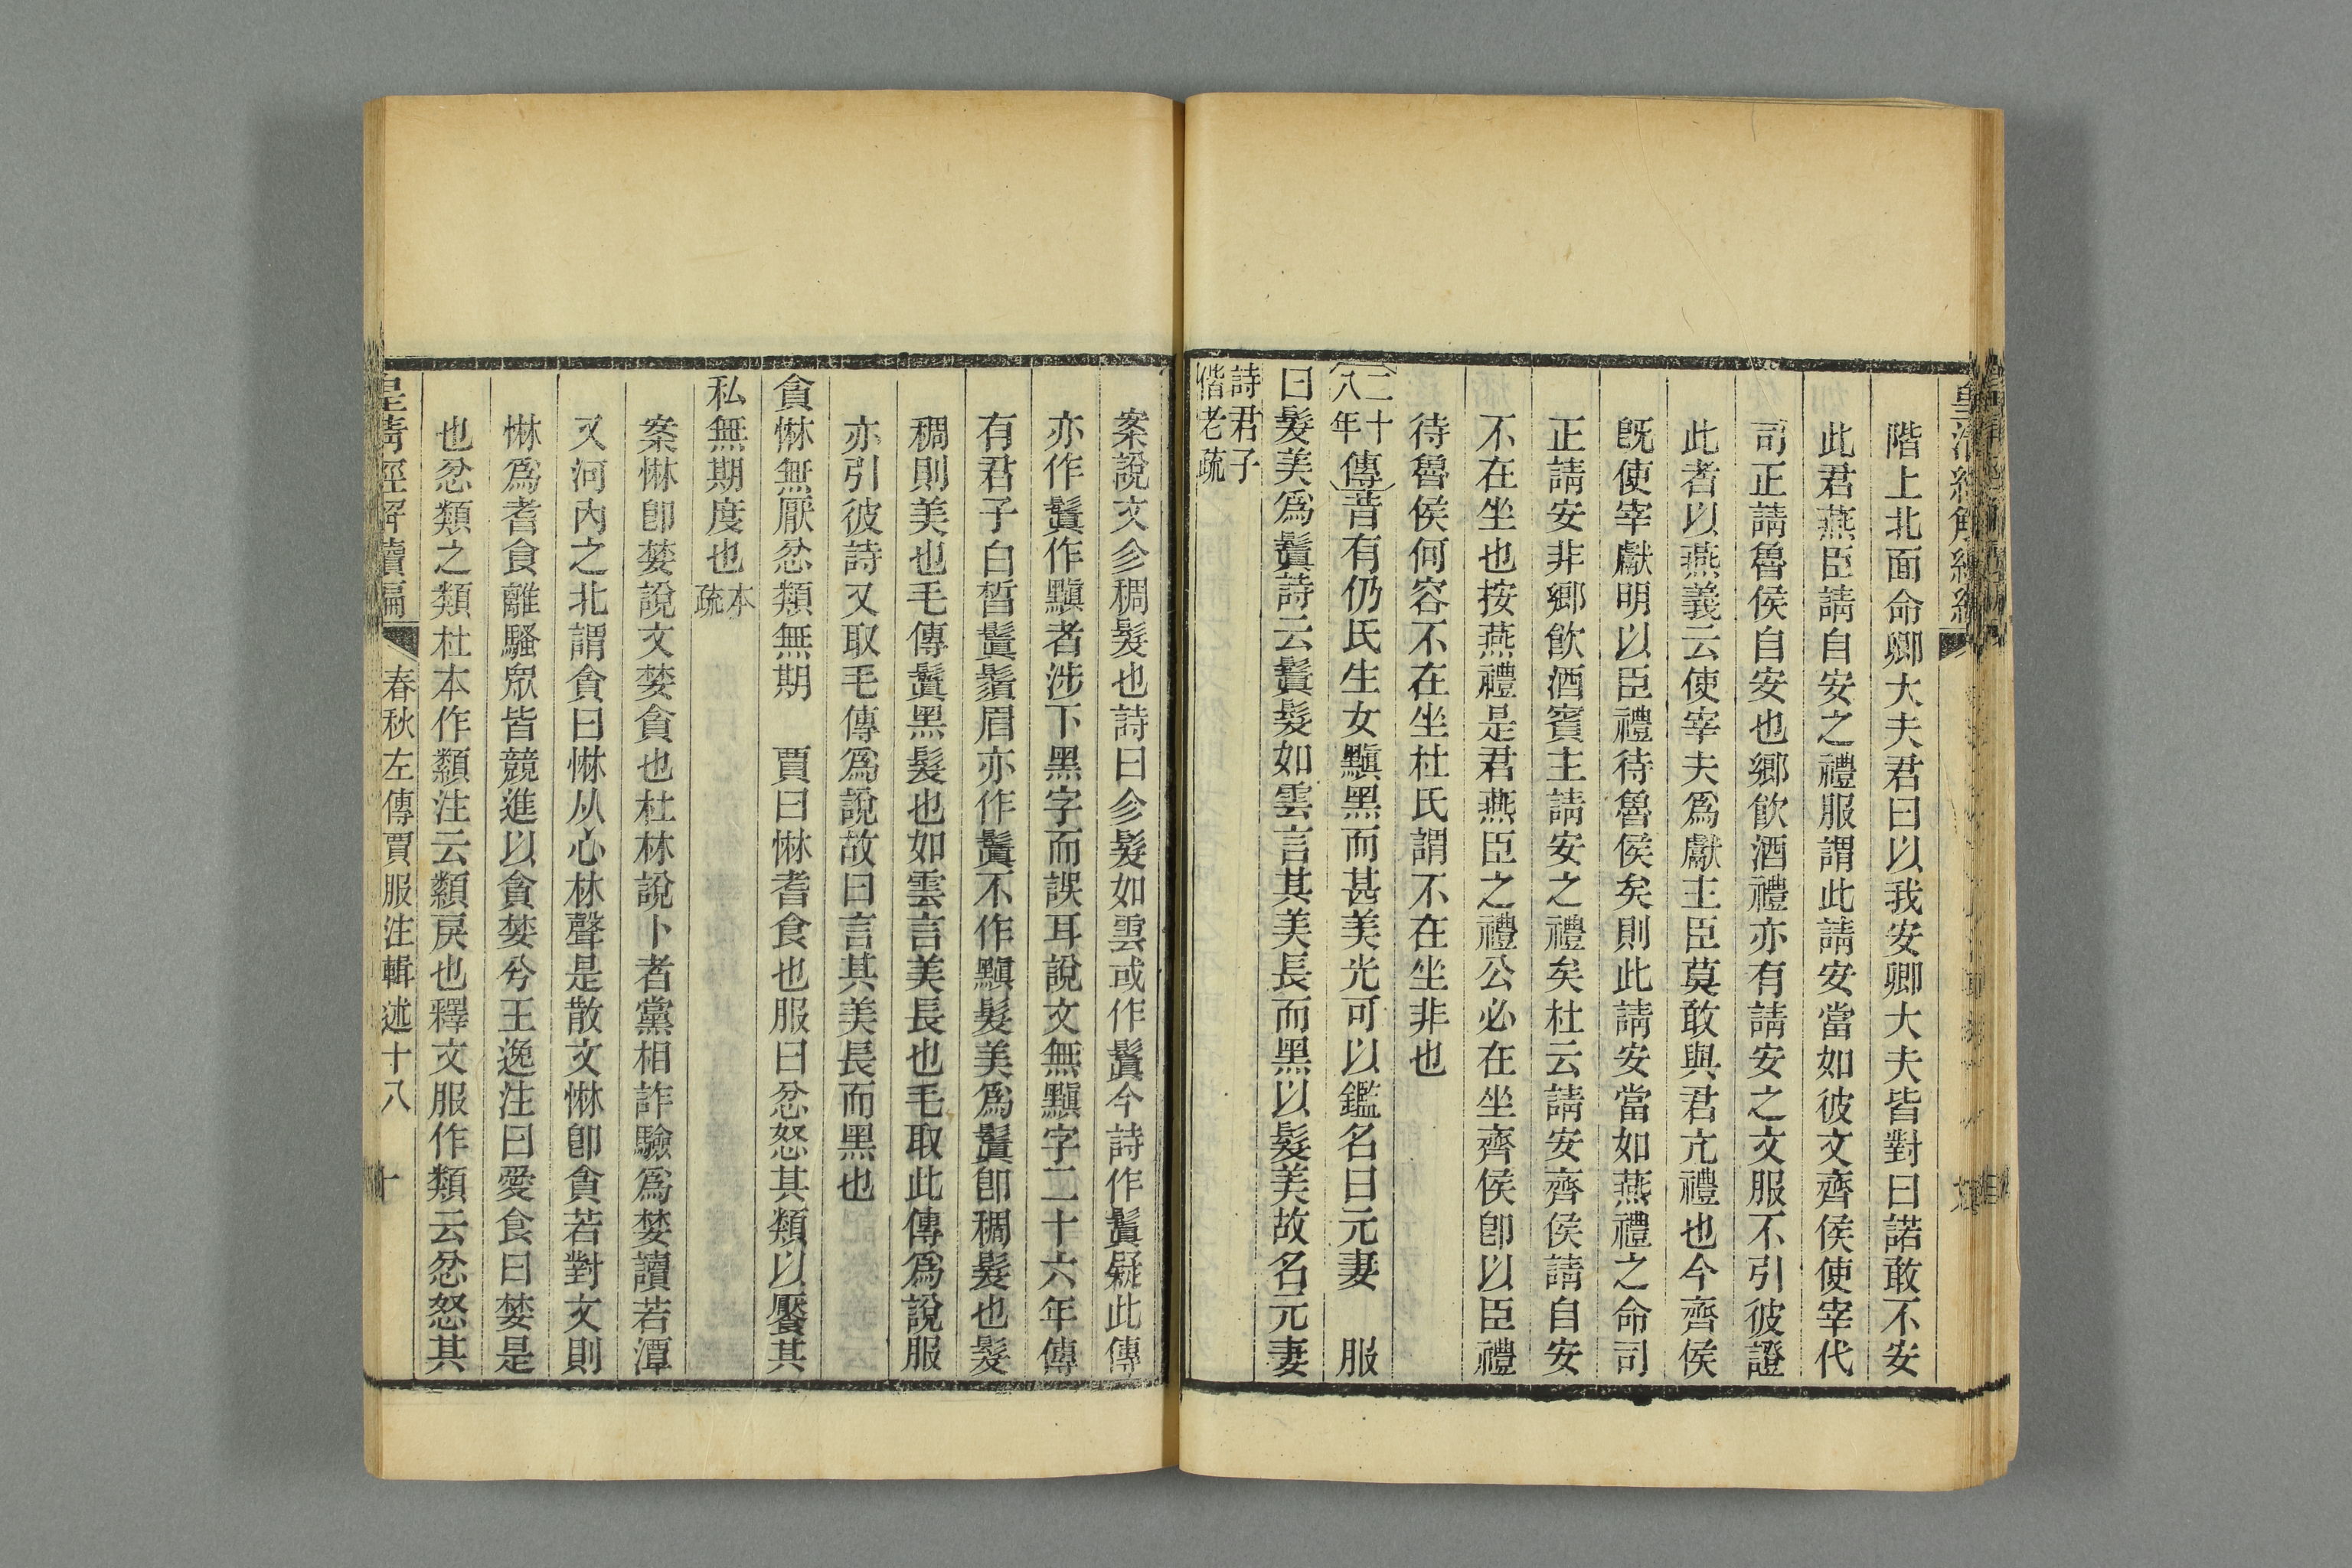 階上北面命卿大夫君曰以我安卿大夫皆對曰諾敢不安
此君燕臣請自安之禮服謂此請安當如彼文齊侯使宰代
司正請魯侯自安也鄉飮酒禮亦有請安之文服不引彼證
此者以燕義云使宰夫爲獻主臣莫敢與君亢禮也今齊侯
旣使宰獻明以臣禮待魯侯矣則此請安當如燕禮之命司
正請安非鄉飮酒賓主請安之禮矣杜云請安齊侯請自安
不在坐也按燕禮是君燕臣之禮公必在坐齊侯卽以臣禮
待魯侯何容不在坐杜氏謂不在坐非也
二十八年傳昔有仍氏生女黰黑而甚美光可以鑑名曰元妻 服
曰髮美爲鬒詩云鬒髮如雲言其美長而黑以髮美故名元妻
詩君子偕老疏
案說文㐱稠髮也詩曰㐱髮如雲或作鬒今詩作鬒疑此傳
亦作鬒作黰者涉下黑字而誤耳說文無黰字二十六年傳
有君子白晳鬒鬚眉亦作鬒不作黰髮美爲鬒卽稠髮也髮
稠則美也毛傳鬒黑髮也如雲言美長也毛取此傳爲說服
亦引彼詩又取毛傳爲說故曰言其美長而黑也
貪惏無厭忿類無期 賈曰惏耆食也服曰忿怒其類以饜其
私無期度也本疏
案惏卽婪說文婪貪也杜林說卜者黨相詐驗爲婪讀若潭
又河內之北謂貪曰惏从心林聲是散文惏卽貪若對文則
惏爲耆食離騷眾皆競進以貪婪兮王逸注曰愛食曰婪是
也忿類之類杜本作纇注云纇戾也釋文服作類云忿怒其
皇淸經解續編 春秋左傳賈服注輯述十八 十